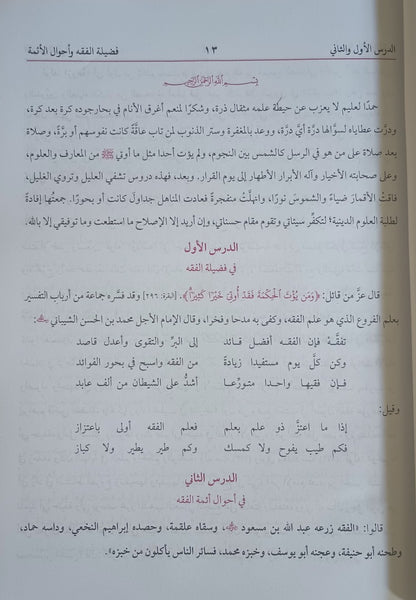 الدرس الأول والثاني ١٣ فضيلة الفقه وأحوال الأئمة
بسم الله الرحمن الرحيم
حمدًا لعليم لا يعزب عن حيطة علمه مثقال ذرة، وشكرًا لمنعم أغرق الأنام في بحارجوده كرة بعد كرة،
ودرَّت عطاياه لسؤَّالها درَّة أيَّ درَّة، ووعد بالمغفرة وستر الذنوب لمن تاب عاقَّة كانت نفوسهم أو برَّة، وصلاة
بعد صلاة على من هو في الرسل كالشمس بين النجوم، ولم يؤت أحدا مثل ما أوتي ﷺ من المعارف والعلوم،
وعلى صحابته الأخيار وآله الأبرار الأطهار إلى يوم القرار. وبعد، فهذه دروس تشفي العليل وتروي الغليل،
فاقتْ الأقمارَ ضياءً والشموسَ نورًا، وانهلَّت منفجرة فعادت المناهل جداول كانت أو بحورًا. جمعتُها إفادةً
لطلبة العلوم الدينية؛ لتكفِّر سيئاتي وتقوم مقام حسناتي، وإن أريد إلا الإصلاح ما استطعت وما توفيقي إلا بالله.
الدرس الأول
في فضيلة الفقه
قال عزَّ من قائل: ﴿وَمَن يُؤْتَ ٱلْحِكْمَةَ فَقَدْ أُوتِىَ خَيْرًا كَثِيرًا﴾. [البقرة: ٢٩٦] وقد فسَّره جماعة من أرباب التفسير
بعلم الفروع الذي هو علم الفقه، وكفى به مدحا وفخرا، وقال الإمام الأجل محمد بن الحسن الشيباني:
تفقَّهْ فإن الفقه أفضل قائد إلى البرِّ والتقوى وأعدل قاصد
وكن كلَّ يوم مستفيدا زيادةً من الفقه واسبح في بحور الفوائد
فإن فقيها واحدا متورِّعا أشدُّ على الشيطان من ألف عابد
وقيل:
إذا ما اعتزَّ ذو علم بعلم فعلم الفقه أولى باعتزاز
فكم طيب يفوح ولا كمسك وكم طير يطير ولا كباز
الدرس الثاني
في أحوال أئمة الفقه
قالوا: «الفقه زرعه عبد الله بن مسعود، وسقاه علقمة، وحصده إبراهيم النخعي، وداسه حماد،
وطحنه أبو حنيفة، وعجنه أبو يوسف، وخبزه محمد، فسائر الناس يأكلون من خبزه».